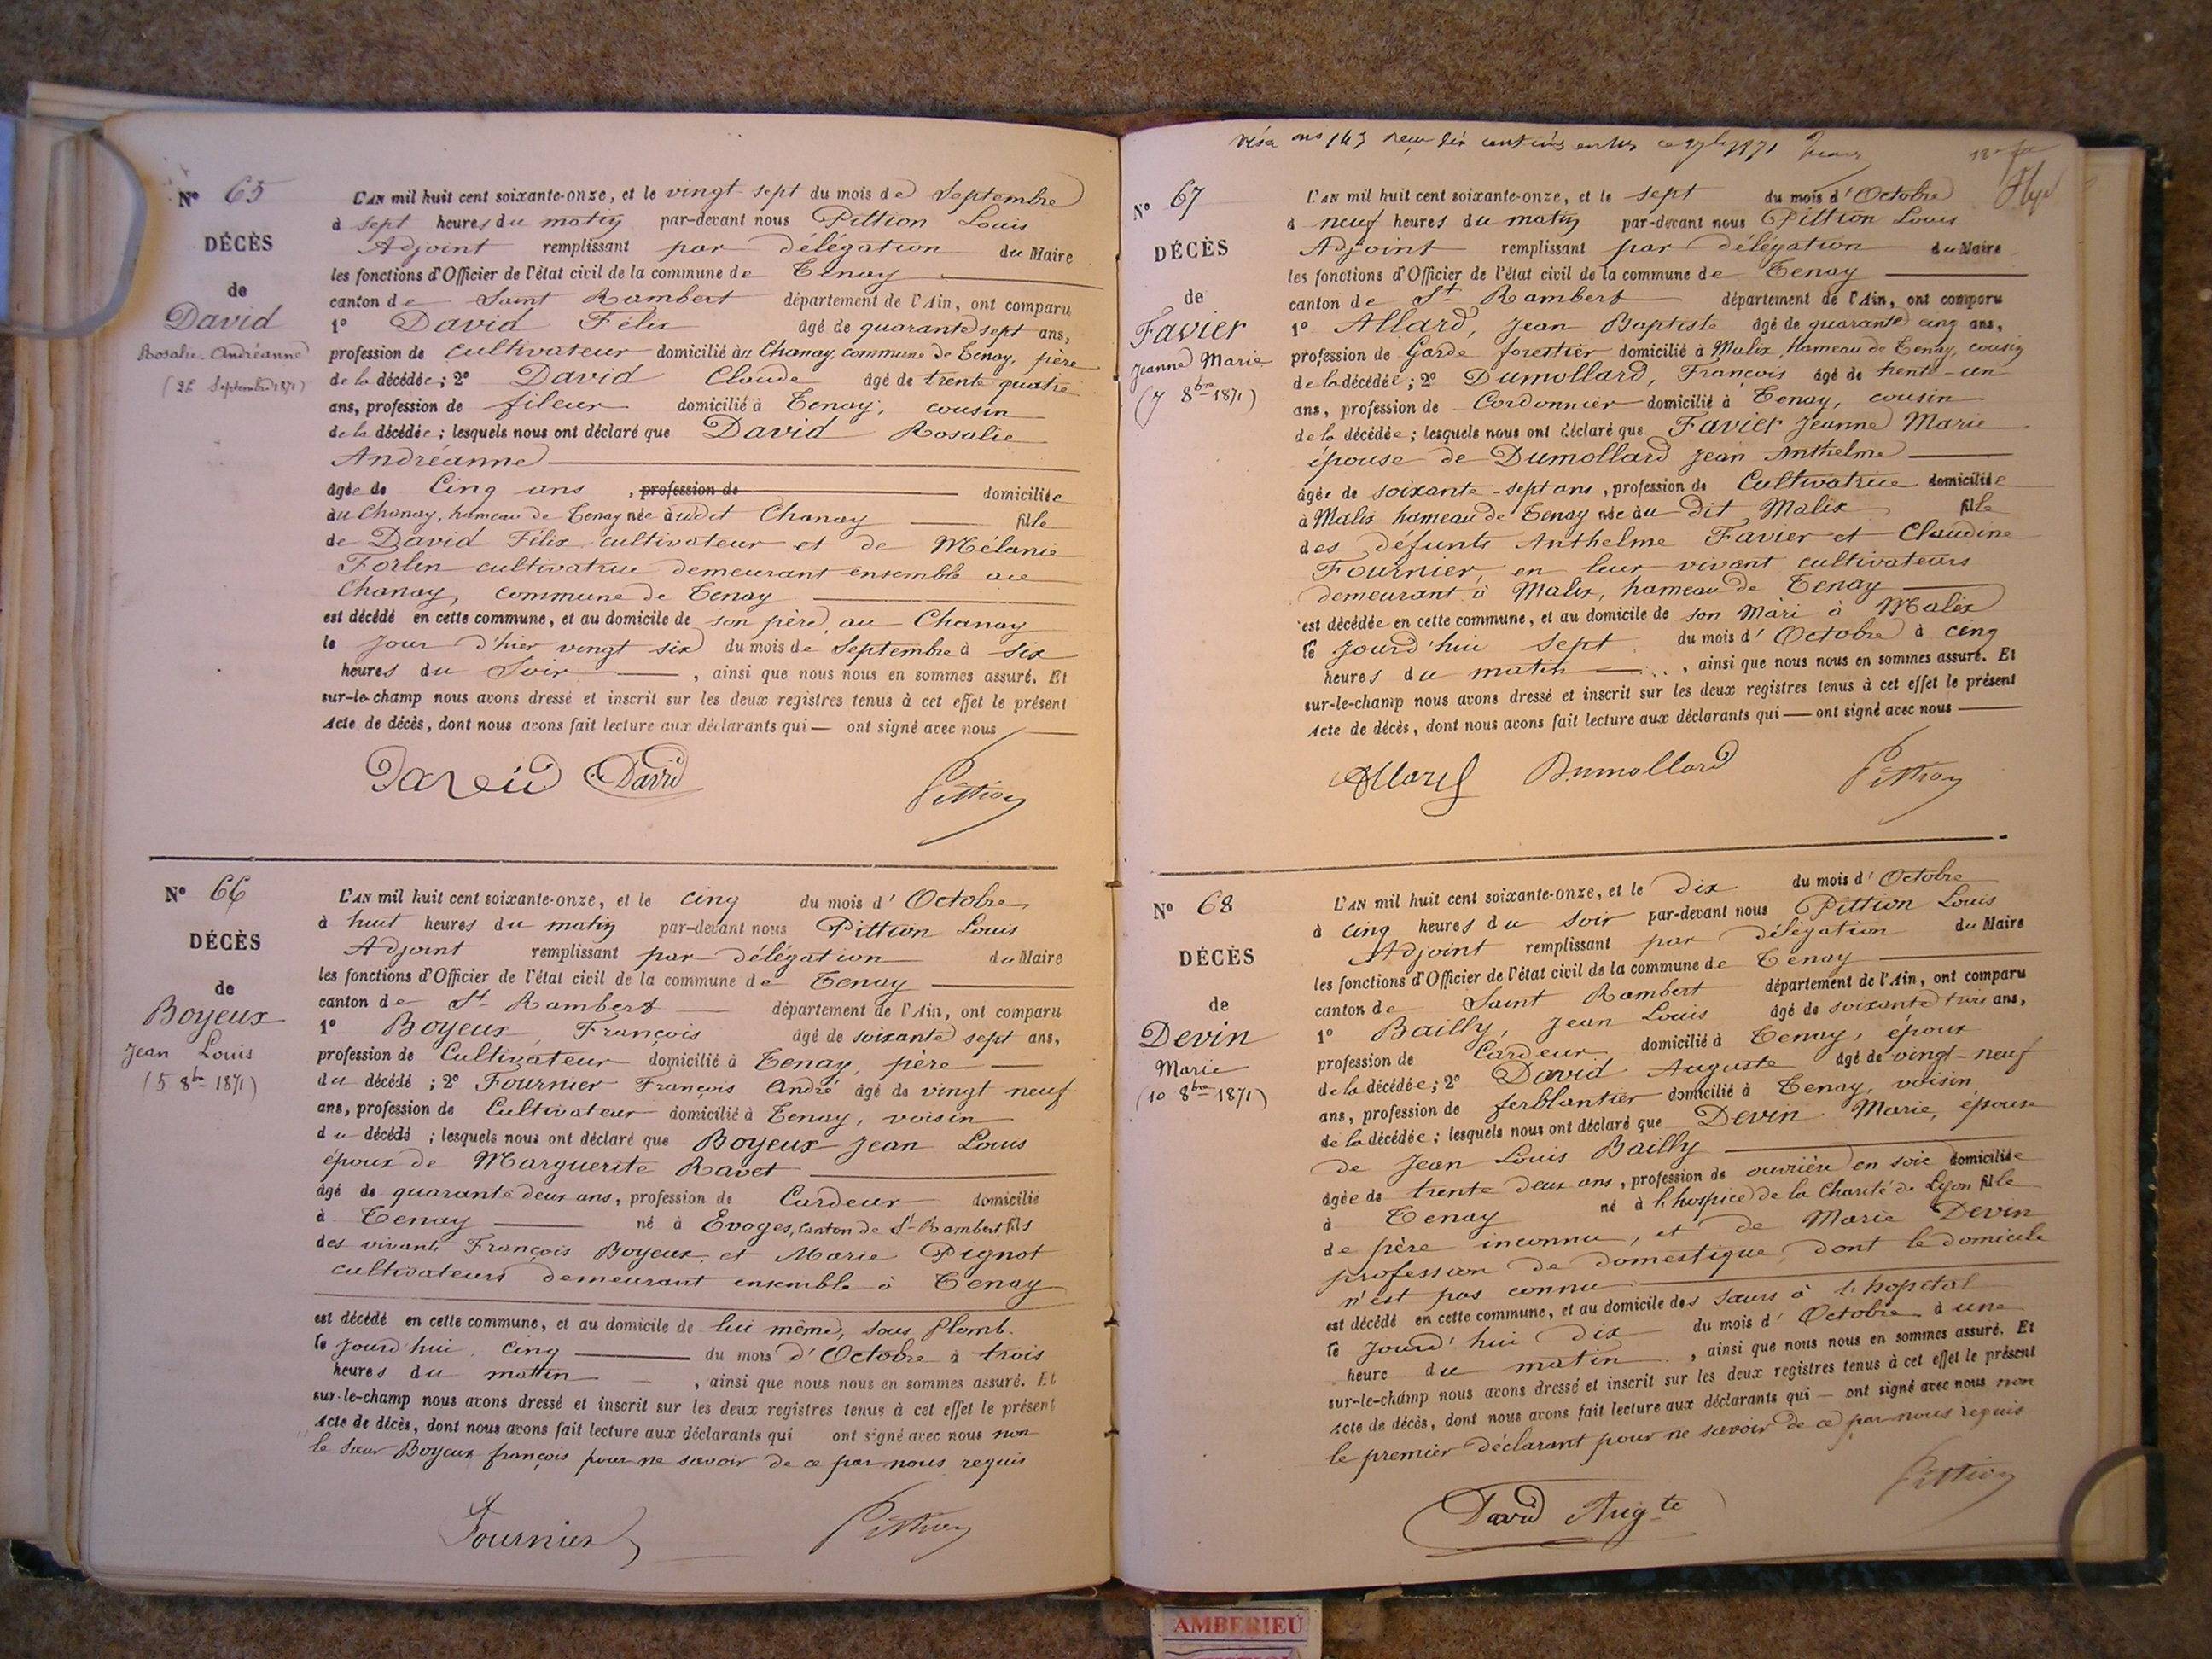 Nº 65
DÉCÈS
de
David
Rosalie-Andréanne
(26 Septembre 1871)
L'AN mil huit cent soixante-onze, et le vingt-sept du mois de Septembre
à sept heures du matin par-devant nous Pittion Louis
Adjoint remplissant par délégation du Maire
les fonctions d'Officier de l'état civil de la commune de Tenay
canton de Saint Rambert département de l'Ain, ont comparu
1º David Félix âgé de quarante sept ans,
profession de cultivateur domicilié au Chanay, commune de Tenay, père
de la décédée; 2º David Claude âgé de trente quatre
ans, profession de fileur domicilié à Tenay, cousin
de la décédée; lesquels nous ont déclaré que David Rosalie
Andréanne
âgée de Cinq ans, profession de domiciliée
au Chanay, hameau de Tenay née audit Chanay fille
de David Félix cultivateur et de Mélanie
Forlin cultivatrice demeurant ensemble au
Chanay, commune de Tenay
est décédé en cette commune, et au domicile de son père, au Chanay
le jour d'hier vingt six du mois de Septembre à six
heures du Soir, ainsi que nous nous en sommes assuré. Et
sur-le-champ nous avons dressé et inscrit sur les deux registres tenus à cet effet le présent
Acte de décès, dont nous avons fait lecture aux déclarants qui — ont signé avec nous
David David Pittion
Nº 66
DÉCÈS
de
Boyeux
Jean Louis
(5 8bre 1871)
L'AN mil huit cent soixante-onze, et le cinq du mois d'Octobre
à huit heures du matin par-devant nous Pittion Louis
Adjoint remplissant par délégation du Maire
les fonctions d'Officier de l'état civil de la commune de Tenay
canton de St Rambert département de l'Ain, ont comparu
1º Boyeux François âgé de soixante sept ans,
profession de Cultivateur domicilié à Tenay, père
du décédé; 2º Fournier François André âgé de vingt neuf
ans, profession de Cultivateur domicilié à Tenay, voisin
du décédé; lesquels nous ont déclaré que Boyeux Jean Louis
époux de Marguerite Ravet
âgé de quarante deux ans, profession de Cardeur domicilié
à Tenay né à Evoges, Canton de St Rambert fils
des vivants François Boyeux et Marie Pignot
cultivateurs demeurant ensemble à Tenay
est décédé en cette commune, et au domicile de lui même, sous Plomb.
le jourd'hui cinq du mois d'Octobre à trois
heures du matin, ainsi que nous nous en sommes assuré. Et
sur-le-champ nous avons dressé et inscrit sur les deux registres tenus à cet effet le présent
Acte de décès, dont nous avons fait lecture aux déclarants qui ont signé avec nous non
le sieur Boyeux françois pour ne savoir de ce par nous requis
Fournier Pittion
1871
Nº 67
DÉCÈS
de
Favier
Jeanne Marie
(7 8bre 1871)
L'AN mil huit cent soixante-onze, et le sept du mois d'Octobre
à neuf heures du matin par-devant nous Pittion Louis
Adjoint remplissant par délégation du Maire
les fonctions d'Officier de l'état civil de la commune de Tenay
canton de St Rambert département de l'Ain, ont comparu
1º Allard, Jean Baptiste âgé de quarante cinq ans,
profession de Garde forestier domicilié à Malix, hameau de Tenay, cousin
de la décédée; 2º Dumollard, François âgé de trente-un
ans, profession de Cordonnier domicilié à Tenay, cousin
de la décédée; lesquels nous ont déclaré que Favier Jeanne Marie
épouse de Dumollard Jean Anthelme
âgée de soixante-sept ans, profession de Cultivatrice domiciliée
à Malix hameau de Tenay née au dit Malix fille
des défunts Anthelme Favier et Claudine
Fournier, en leur vivant cultivateurs
demeurant à Malix, hameau de Tenay
est décédée en cette commune, et au domicile de son Mari à Malix
le jourd'hui sept du mois d'Octobre à cinq
heures du matin, ainsi que nous nous en sommes assuré. Et
sur-le-champ nous avons dressé et inscrit sur les deux registres tenus à cet effet le présent
Acte de décès, dont nous avons fait lecture aux déclarants qui — ont signé avec nous
Allard Dumollard Pittion
Nº 68
DÉCÈS
de
Devin
Marie
(10 8bre 1871)
L'AN mil huit cent soixante-onze, et le dix du mois d'Octobre
à cinq heures du soir par-devant nous Pittion Louis
Adjoint remplissant par délégation du Maire
les fonctions d'Officier de l'état civil de la commune de Tenay
canton de Saint Rambert département de l'Ain, ont comparu
1º Bailly, Jean Louis âgé de soixante trois ans,
profession de Cardeur domicilié à Tenay, époux
de la décédée; 2º David Auguste âgé de vingt-neuf
ans, profession de ferblantier domicilié à Tenay, voisin
de la décédée; lesquels nous ont déclaré que Devin Marie, épouse
de Jean Louis Bailly
âgée de trente deux ans, profession de ouvrière en soie domiciliée
à Tenay né à l'hospice de la Charité de Lyon fille
de père inconnu, et de Marie Devin
profession de domestique, dont le domicile
n'est pas connu
est décédé en cette commune, et au domicile des sœurs à l'hopital
le jourd'hui dix du mois d'Octobre à une
heure du matin, ainsi que nous nous en sommes assuré. Et
sur-le-champ nous avons dressé et inscrit sur les deux registres tenus à cet effet le présent
Acte de décès, dont nous avons fait lecture aux déclarants qui — ont signé avec nous non
le premier déclarant pour ne savoir de ce par nous requis
David Augte Pittion
AMBERIEU